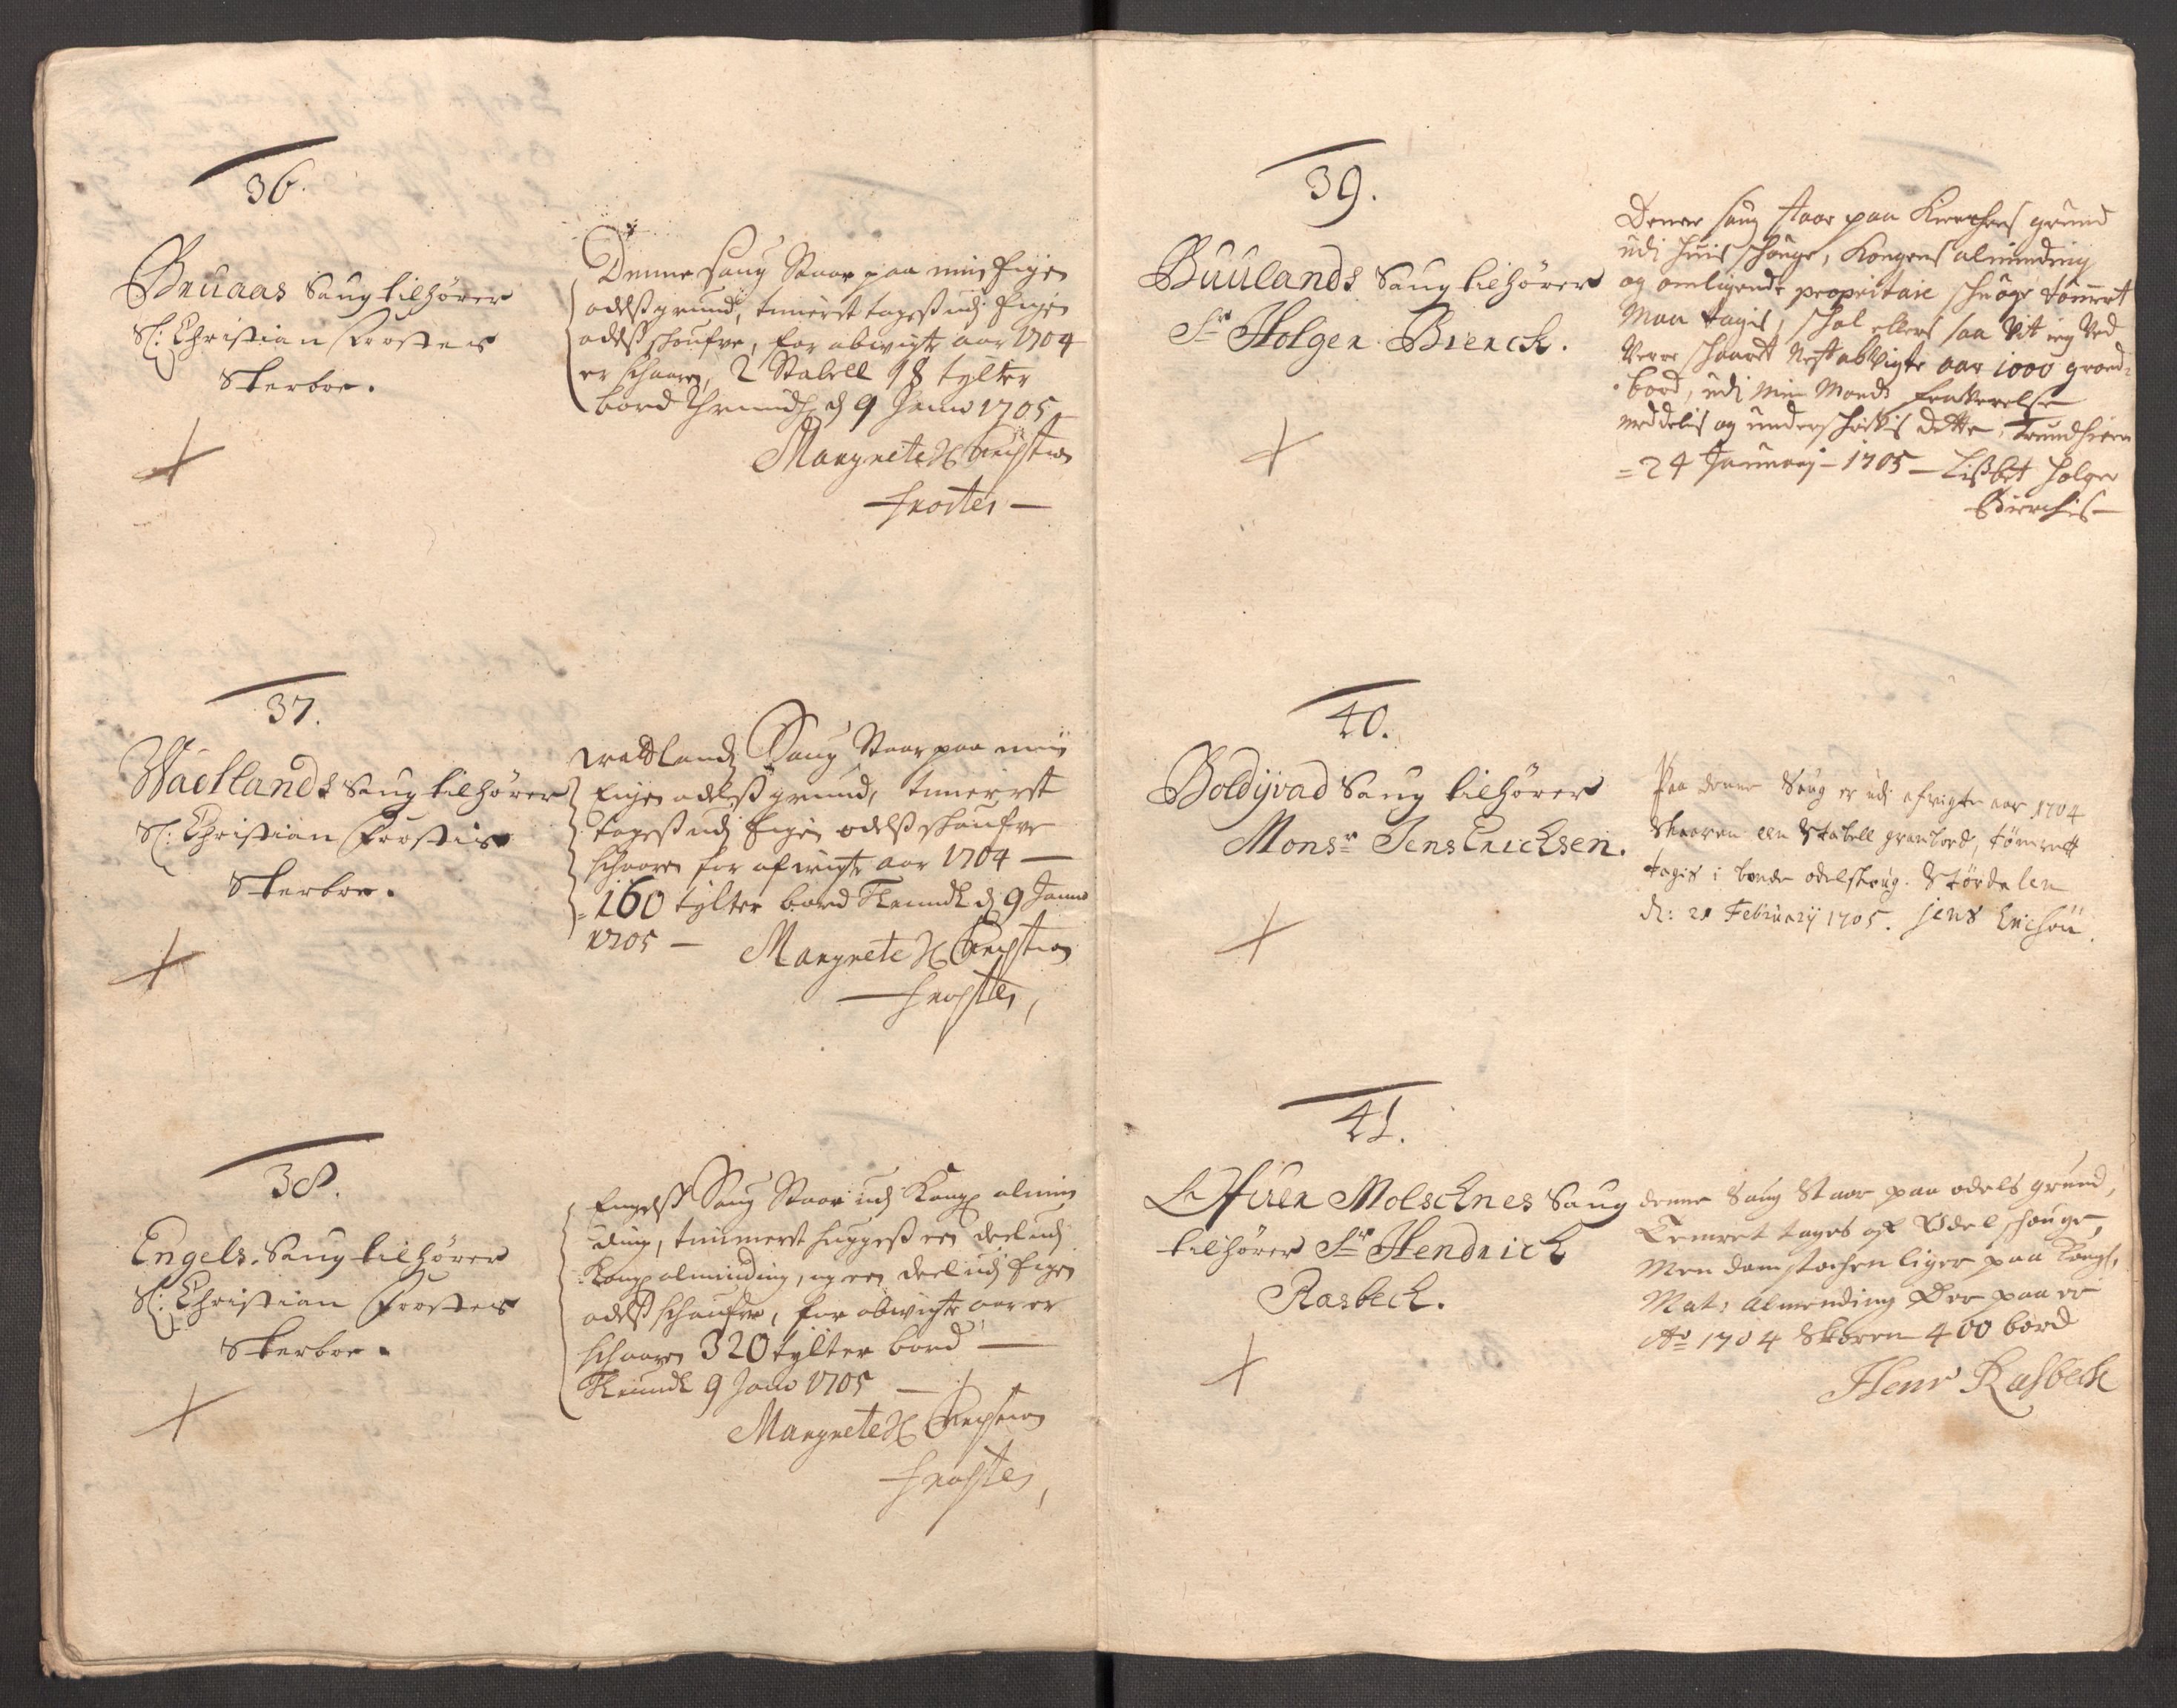 36.
Bruaas Saug tilhører
Sl: Christian Frostes
Sterboe.
Denne Saug Staar paa min Eigen
odelss grund, timerst tagess udj Eigen
odelss schoufve, for abvigte aar 1704
er schaaren, 2 Stabell 18 tylter
bord Thrundh d 9 Janu 1705
Margrete Christian
Frostes
37.
Waetlands Saug tilhører
Sl: Christian Frostis
Sterboe.
Saug Staar paa min
Eigen odelss grund, timerst
tagess udj Eigen odelss schoufve
schaaren for afvigte aar 1704
160 tylter bord Thrundh d 9 Janu
1705 Margrete Christian
Frostes
38.
Engels Saug tilhører
Sl: Christian Frostes
Sterboe.
Engelss Saug Staar udj Kong almin
ding, timmerst huggess een deel udj
Kong alminding, og een deel udj Eigen
odelss schoufve, for abvigte aar er
schaaren 320 tylter bord
Thrundh 9 Janu 1705
Margrete Christian
Frostes
39.
Buulands Saug tilhører
Sr Holger Bierck.
Denne saug staar paa Kirchens grund
udi huis schouge, Kongens alminding
og omligende propritaie schouge tømret
Maa tagis, schal ellers saa vit ieg ved
Vere schaaret Nest abvigte aar 1000 groed=
bord, udi min Mands
meddelis og underschrifvis dette, Trundhiem
=24 January 1705 Lissbet Holger
Bierchis
40.
Boldijvad Saug tilhører
Monsr Jens Erichsen.
Paa denne Saug er udi afvigte aar 1704
skaaren een Stabell granbord, tømret
tagis i bonde odelskoug. Størdalen
d: 21 February 1705. Jens Erichsøn.
41.
Molschnes Saug
tilhører Sr Hendrich
Rasbech.
denne Saug Staar paa odels grund,
Temret tages af Odel schouge,
Men damstochen liger paa Kongl.
Mat: Almending Der paa er
Ao 1704 Skoren 400 bord
Henr Rasbech